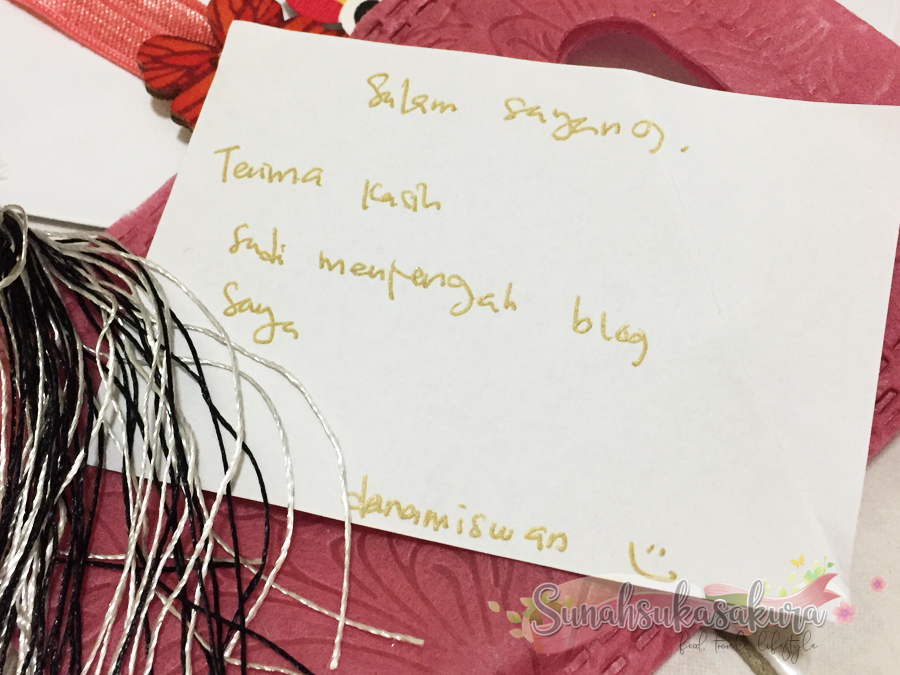 Salam sayang.
Terima kasih
Sudi menjengah blog
Saya
danamiswan :)
Sunahsukasakura
food. travel. lifestyle